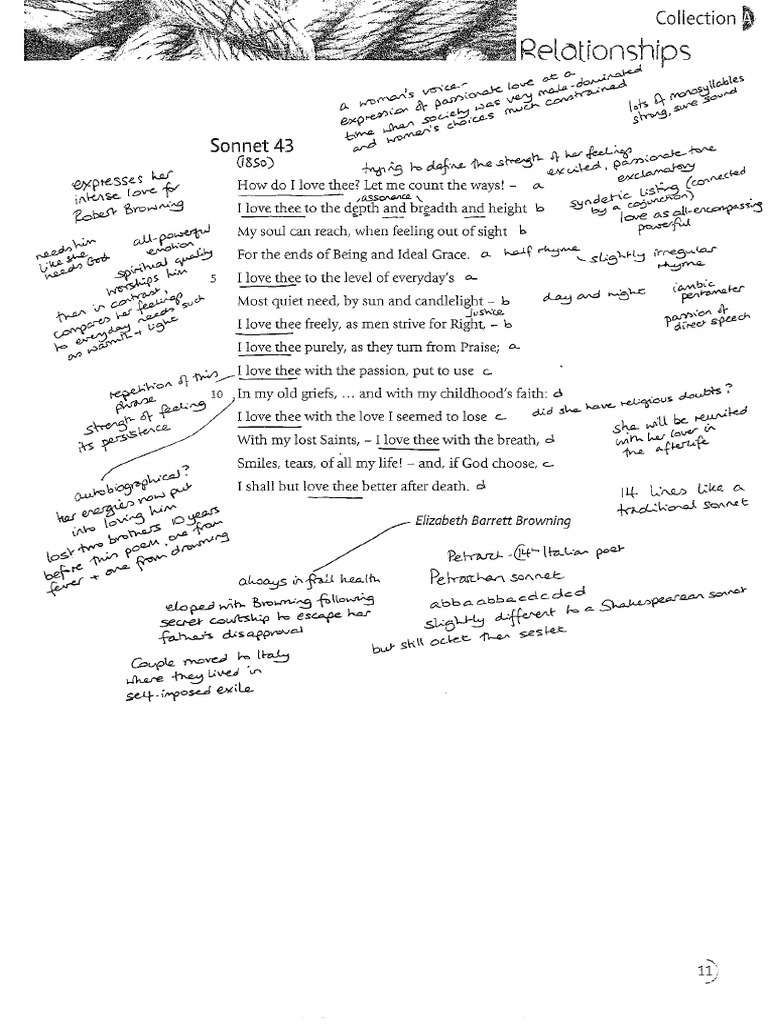 Collection A
Relationships
a woman's voice -
expression of passionate love at a
time when society was very male-dominated
and women's choices much constrained
lots of monosyllables
strong, sure sound
Sonnet 43
(1850)
trying to define the strength of her feelings
excited, passionate tone
exclamatory
expresses her
intense love for
Robert Browning
How do I love thee? Let me count the ways! – a
assonance
I love thee to the depth and breadth and height b
syndetic listing (connected
by a conjunction)
love as all-encompassing
powerful
My soul can reach, when feeling out of sight b
needs him
like she
needs God
all-powerful
emotion
For the ends of Being and Ideal Grace. a half rhyme
slightly irregular
rhyme
spiritual quality
worships him
5 I love thee to the level of everyday's a
then in contrast,
compares her feelings
to everyday needs such
as warmth + light
Most quiet need, by sun and candlelight – b
day and night
iambic
pentameter
justice
I love thee freely, as men strive for Right, – b
passion of
direct speech
I love thee purely, as they turn from Praise; a
I love thee with the passion, put to use c
repetition of this
phrase
strength of feeling
its persistence
10 In my old griefs, ... and with my childhood's faith: d
I love thee with the love I seemed to lose c
did she have religious doubts?
With my lost Saints, – I love thee with the breath, d
she will be reunited
with her lover in
the afterlife
Smiles, tears, of all my life! – and, if God choose, c
I shall but love thee better after death. d
14 lines like a
traditional sonnet
autobiographical?
her energies now put
into loving him
lost two brothers 10 years
before this poem, one from
fever + one from drowning
Elizabeth Barrett Browning
always in frail health
eloped with Browning following
secret courtship to escape her
father's disapproval
Couple moved to Italy
where they lived in
self-imposed exile
Petrarch - 14th Italian poet
Petrarchan sonnet
abbaabbacdcdcd
slightly different to a Shakespearean sonnet
but still octet then sestet
11